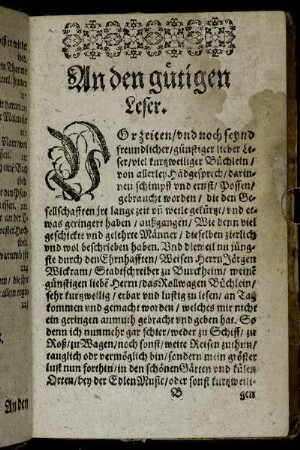 An den gütigen
Leser.
VOr zeiten / vnd noch seynd
freundlicher / günstiger lieber Le-
ser / viel kurtzweiliger Büchlein /
von allerley Hädgesprech / darin-
nen schimpff vnd ernst / Possen /
gebraucht worden / die den Ge-
sellschafften jre lange zeit vñ weile gekürtzt / vnd et-
was geringert haben / außgangen / Wie denn viel
geschickte vnd gelehrte Männer / dieselben zierlich
vnd wol beschrieben haben. Vnd dieweil nu jüng-
ste durch den Ehrnhafften / Weisen Herrn Jörgen
Wickram / Stadtschreiber zu Burckheim / meinē
günstigen liebē Herrn / das Rollwagen Büchlein /
sehr kurtzweilig / erbar vnd lustig zu lesen / an Tag
kommen vnd gemacht worden / welches mir nicht
ein geringen anmuth gebracht vnd geben hat. So
denn ich nunmehr gar schier / weder zu Schiff / zu
Roß / zu Wagen / noch sonst / weite Reisen zuthun /
tauglich odr vermöglich bin / sondern mein gröster
lust nun forthin / in den schönen Gärten vnd külen
Orten / bey der Edlen Music / oder sonst kurtzweili-
B
gen
An den